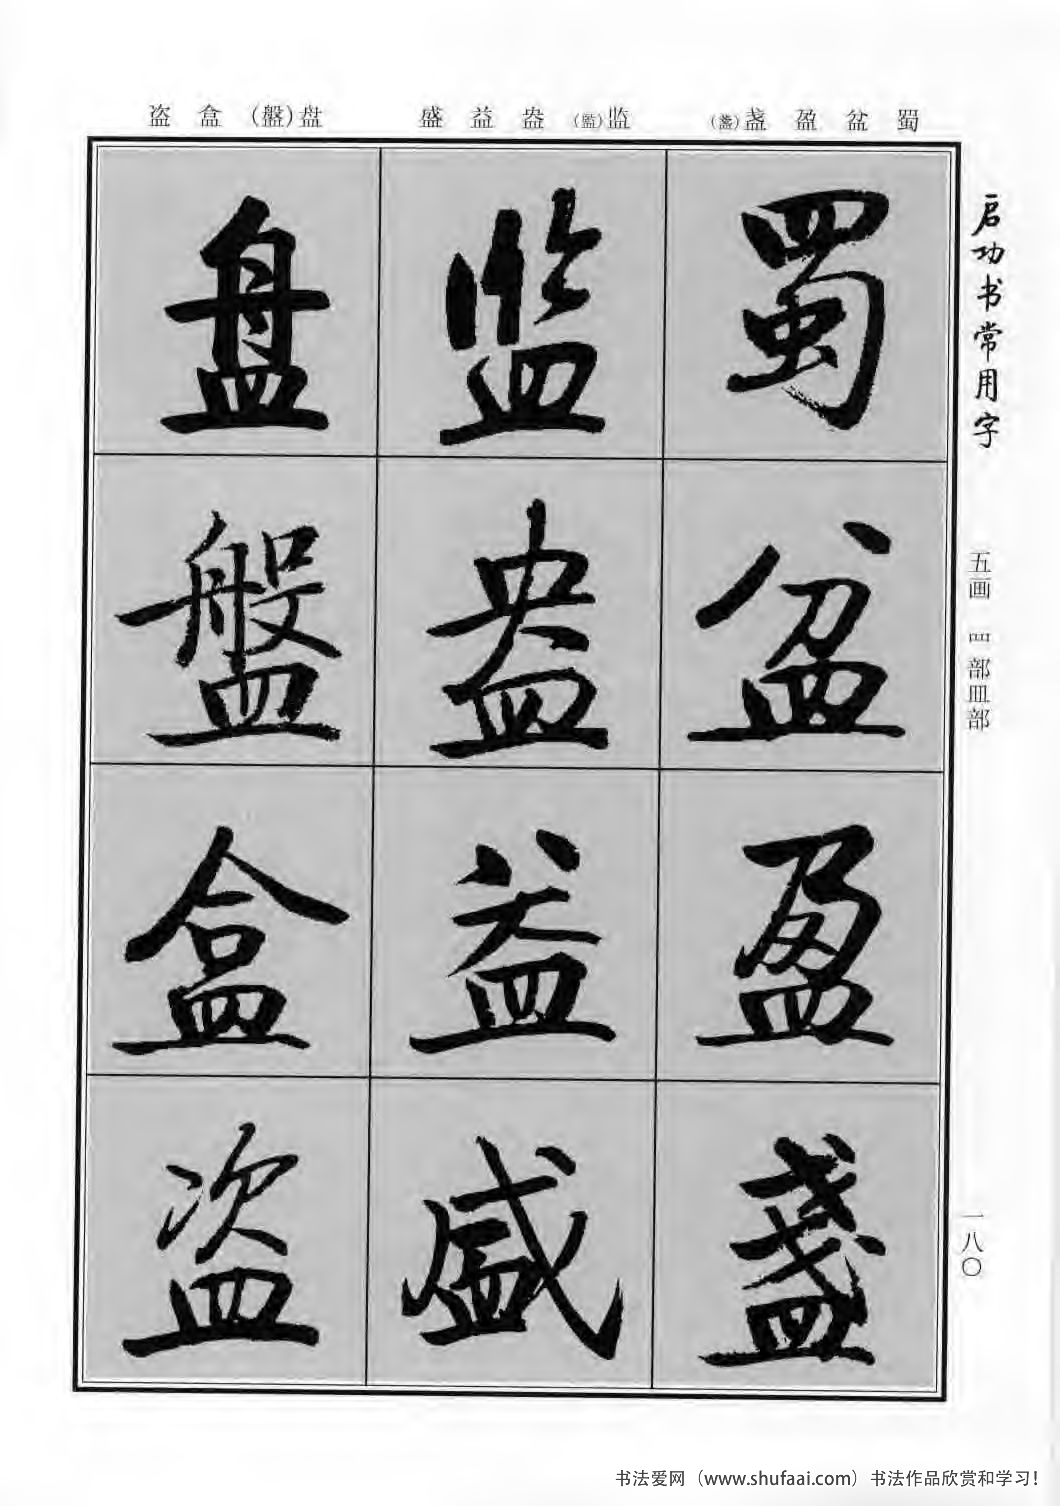 盗 盒 (盤)盘 盛 益 盎 (監)监 (盞)盏 盈 盆 蜀
启功书常用字
五画 罒部皿部
一八〇
蜀
盆
盈
盞
监
盎
益
盛
盘
盤
盒
盗
书法爱网（www.shufaai.com）书法作品欣赏和学习！